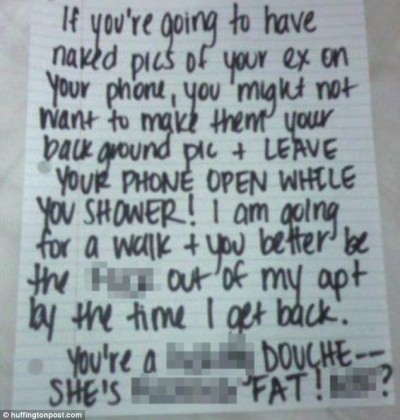 If you're going to have
naked pics of your ex on
your phone, you might not
want to make them your
background pic + LEAVE
YOUR PHONE OPEN WHILE
YOU SHOWER! I am going
for a walk + you better be
the out of my apt
by the time I get back.
You're a DOUCHE--
SHE'S FAT! ?
© huffingtonpost.com